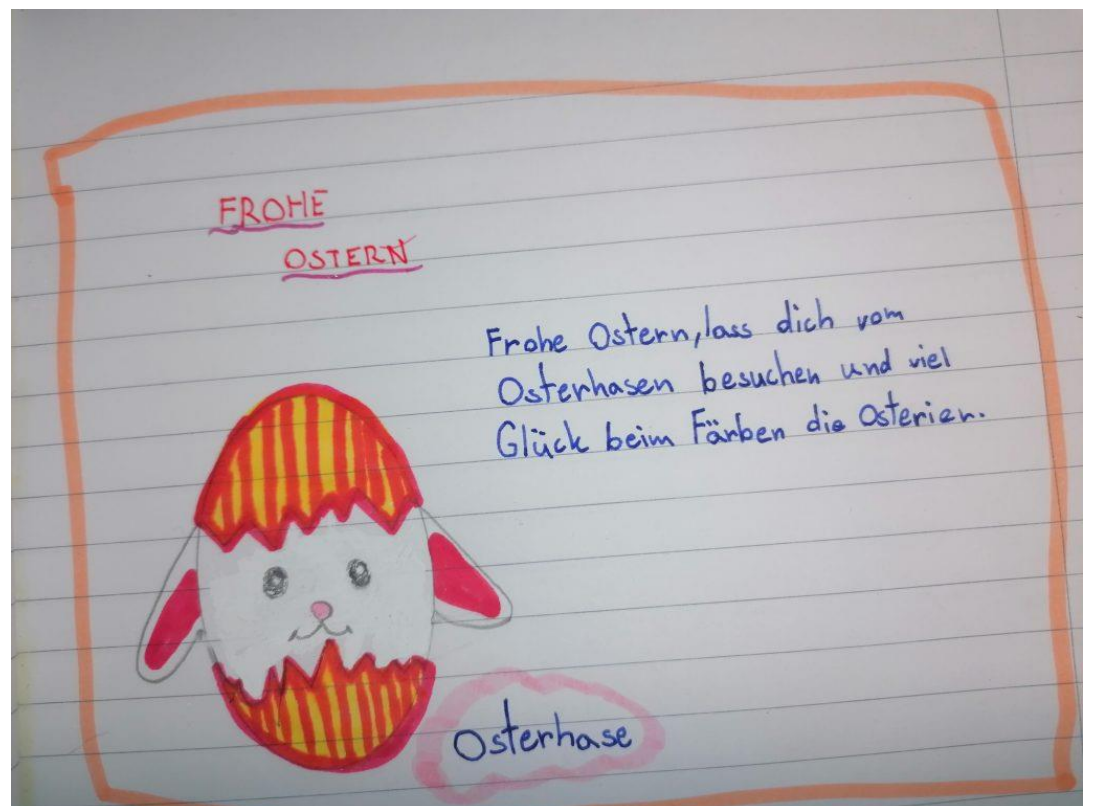 FROHE
OSTERN
Frohe Ostern, lass dich vom
Osterhasen besuchen und viel
Glück beim Färben die Osterier.
Osterhase